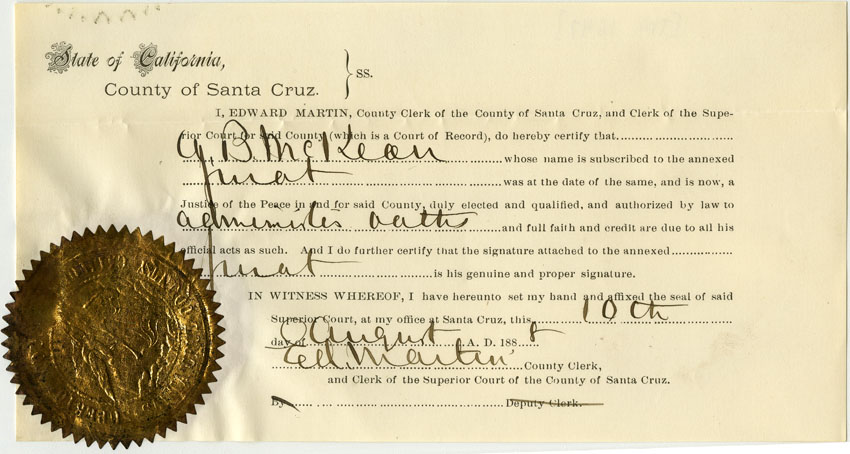 State of California,
County of Santa Cruz.
} ss.
I, EDWARD MARTIN, County Clerk of the County of Santa Cruz, and Clerk of the Supe-
rior Court for said County (which is a Court of Record), do hereby certify that
A. B. McKean whose name is subscribed to the annexed
jurat was at the date of the same, and is now, a
Justice of the Peace in and for said County, duly elected and qualified, and authorized by law to
administer oaths and full faith and credit are due to all his
official acts as such. And I do further certify that the signature attached to the annexed
jurat is his genuine and proper signature.
IN WITNESS WHEREOF, I have hereunto set my hand and affixed the seal of said
Superior Court, at my office at Santa Cruz, this 10th
day of August A. D. 1888
Ed. Martin County Clerk,
and Clerk of the Superior Court of the County of Santa Cruz.
By Deputy Clerk.